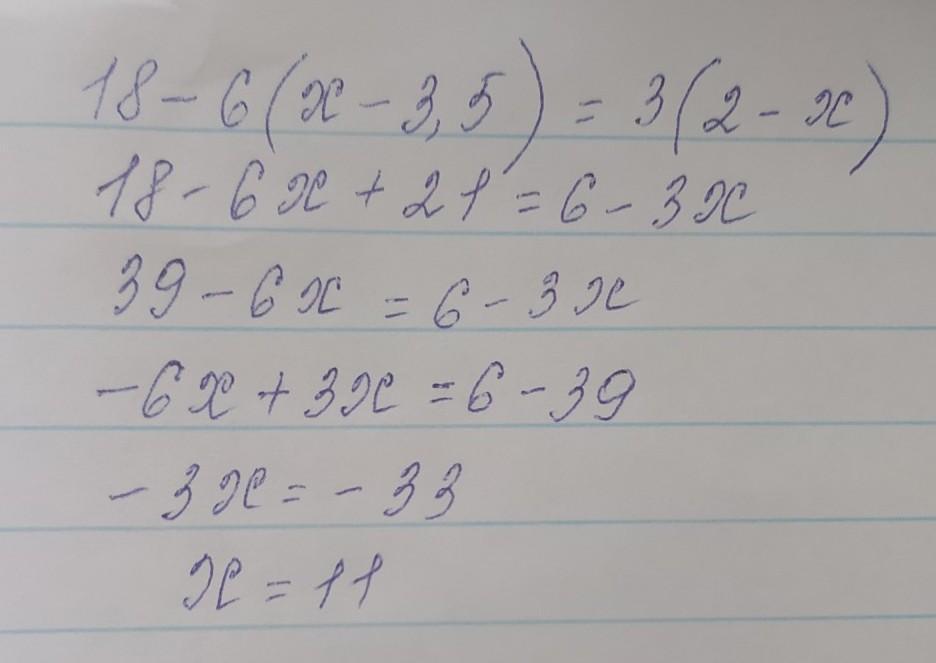 18 - 6(x - 3,5) = 3(2 - x)
18 - 6x + 21 = 6 - 3x
39 - 6x = 6 - 3x
-6x + 3x = 6 - 39
-3x = -33
x = 11